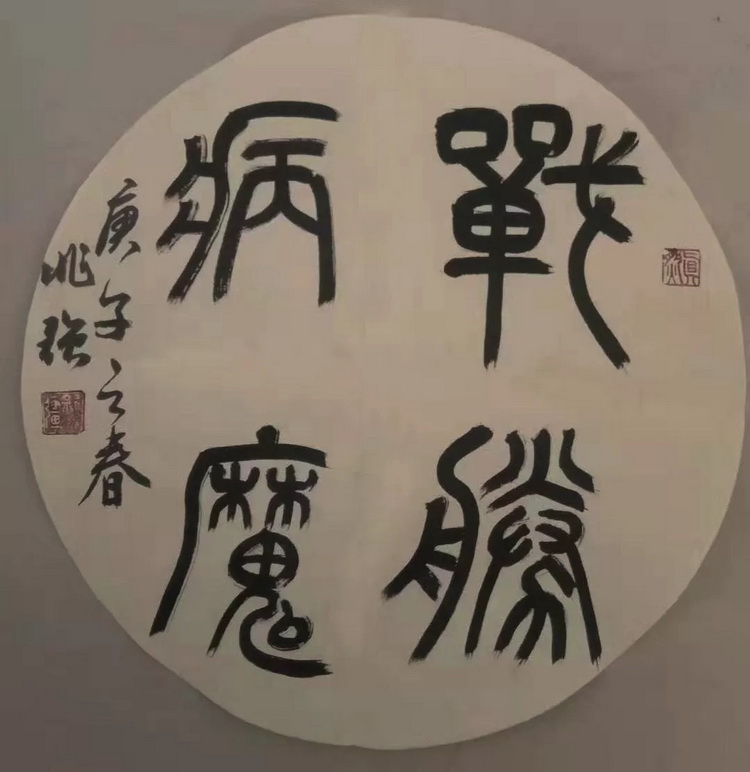 戰勝
病魔
庚子之春
兆强